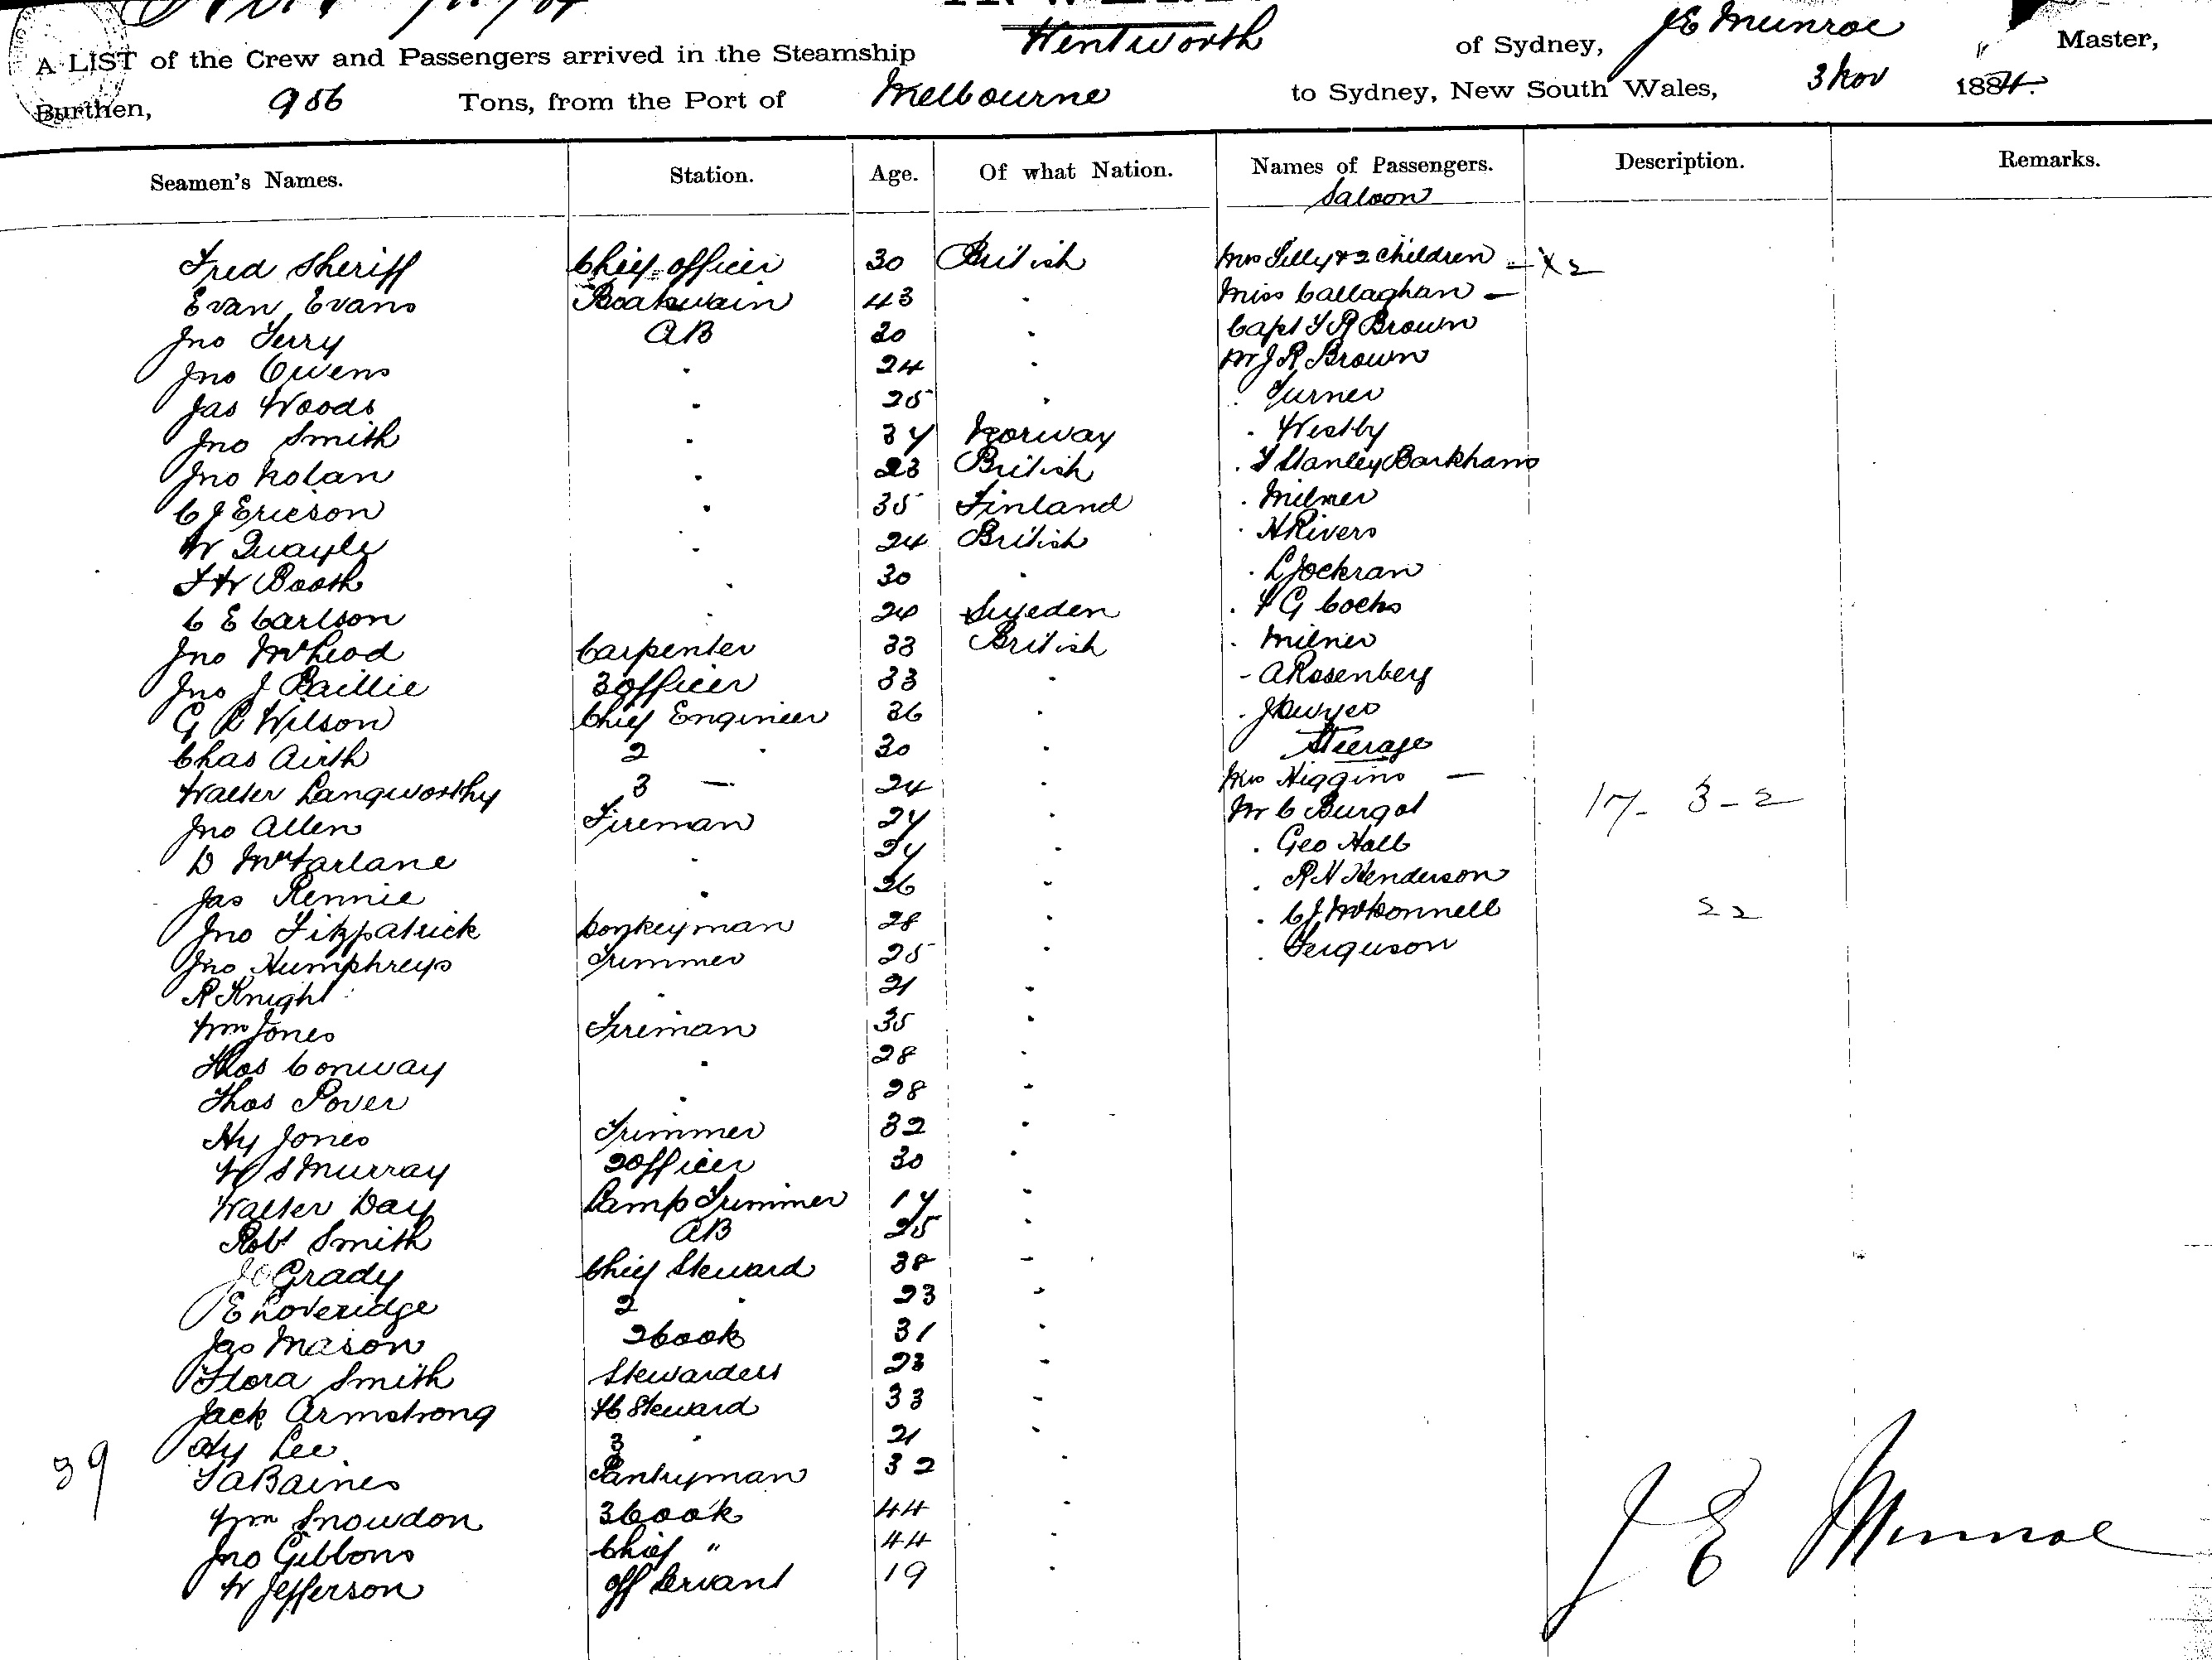 A LIST of the Crew and Passengers arrived in the Steamship Wentworth of Sydney, J E Munroe Master,
Burthen, 986 Tons, from the Port of Melbourne to Sydney, New South Wales, 3 Nov 1884.
Seamen's Names. Station. Age. Of what Nation. Names of Passengers. Description. Remarks.
Saloon
Fred Sheriff Chief Officer 30 British Mrs & 2 children - X 2
Evan Evans Boatswain 43 . Miss Callaghan -
Jno Terry AB 30 . Capt T R Brown
Jno Owens . 24 . Mr J R Brown
Jas Woods . 25 . . Turner
Jno Smith . 37 Norway . Westby
Jno Nolan . 23 British . T Stanley Barkham
C J Ericson . 35 Finland . Milner
W Quayle . 24 British . H Rivers
T W Booth . 30 . . L Jockran
C E Carlson . 24 Sweden . F G Cocks
Jno McLeod Carpenter 33 British . Milner
Jno J Baillie 3 Officer 33 . - A Rosenberg
G R Wilson Chief Engineer 36 . . J Dwyer
Chas Airth 2 . 30 . Steerage
Walter Langworthy 3 - 24 . Mrs Higgins -
Jno Allen Fireman 27 . Mr C Burgot 17 - 3 - 2
D McFarlane . 27 . . Geo Hall
Jas Rennie . 26 . . R H Henderson
Jno Fitzpatrick Donkeyman 28 . . C J McConnell 22
Jno Humphreys Trimmer 25 . . Ferguson
R Knight . 21 .
Wm Jones Fireman 35 .
Thos Conway . 28 .
Thos Pover . 28 .
Hy Jones Trimmer 32 .
W S Murray 2 Officer 30 .
Walter Day Lamp Trimmer 17 .
Robt Smith AB 25 .
J O Grady Chief Steward 38 -
E Loveridge 2 . 23 -
Jas Mason 2 Cook 31 .
Flora Smith Stewardess 23 -
Jack Armstrong Steward 33 -
Hy Lee 3 . 21 .
39 T A Baines Pantryman 32 .
Wm Snowdon 3 Cook 44 .
Jno Gibbons Chief " 44 .
W Jefferson Off Servant 19 .
J E Munroe